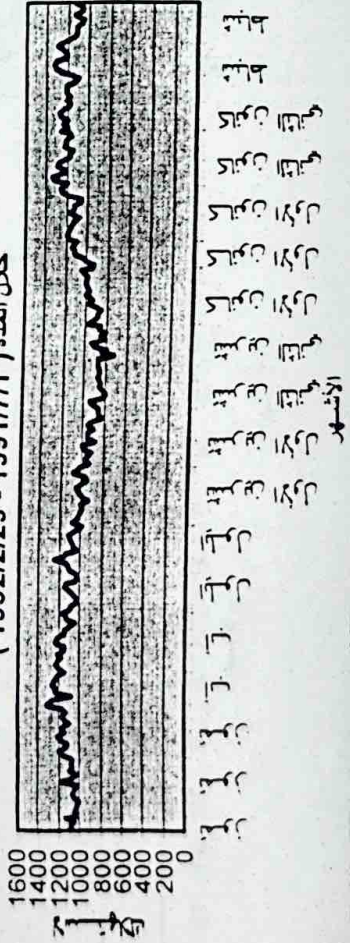 خلال المدة ( 1991/7/1 - 1992/2/29 )
1600
1400
1200
1000
800
600
400
200
0
تموز
تموز
تموز
آب
آب
ايلول
ايلول
تشرين الأول
تشرين الأول
تشرين الثاني
تشرين الثاني
كانون الأول
كانون الأول
كانون الأول
كانون الثاني
كانون الثاني
شباط
شباط